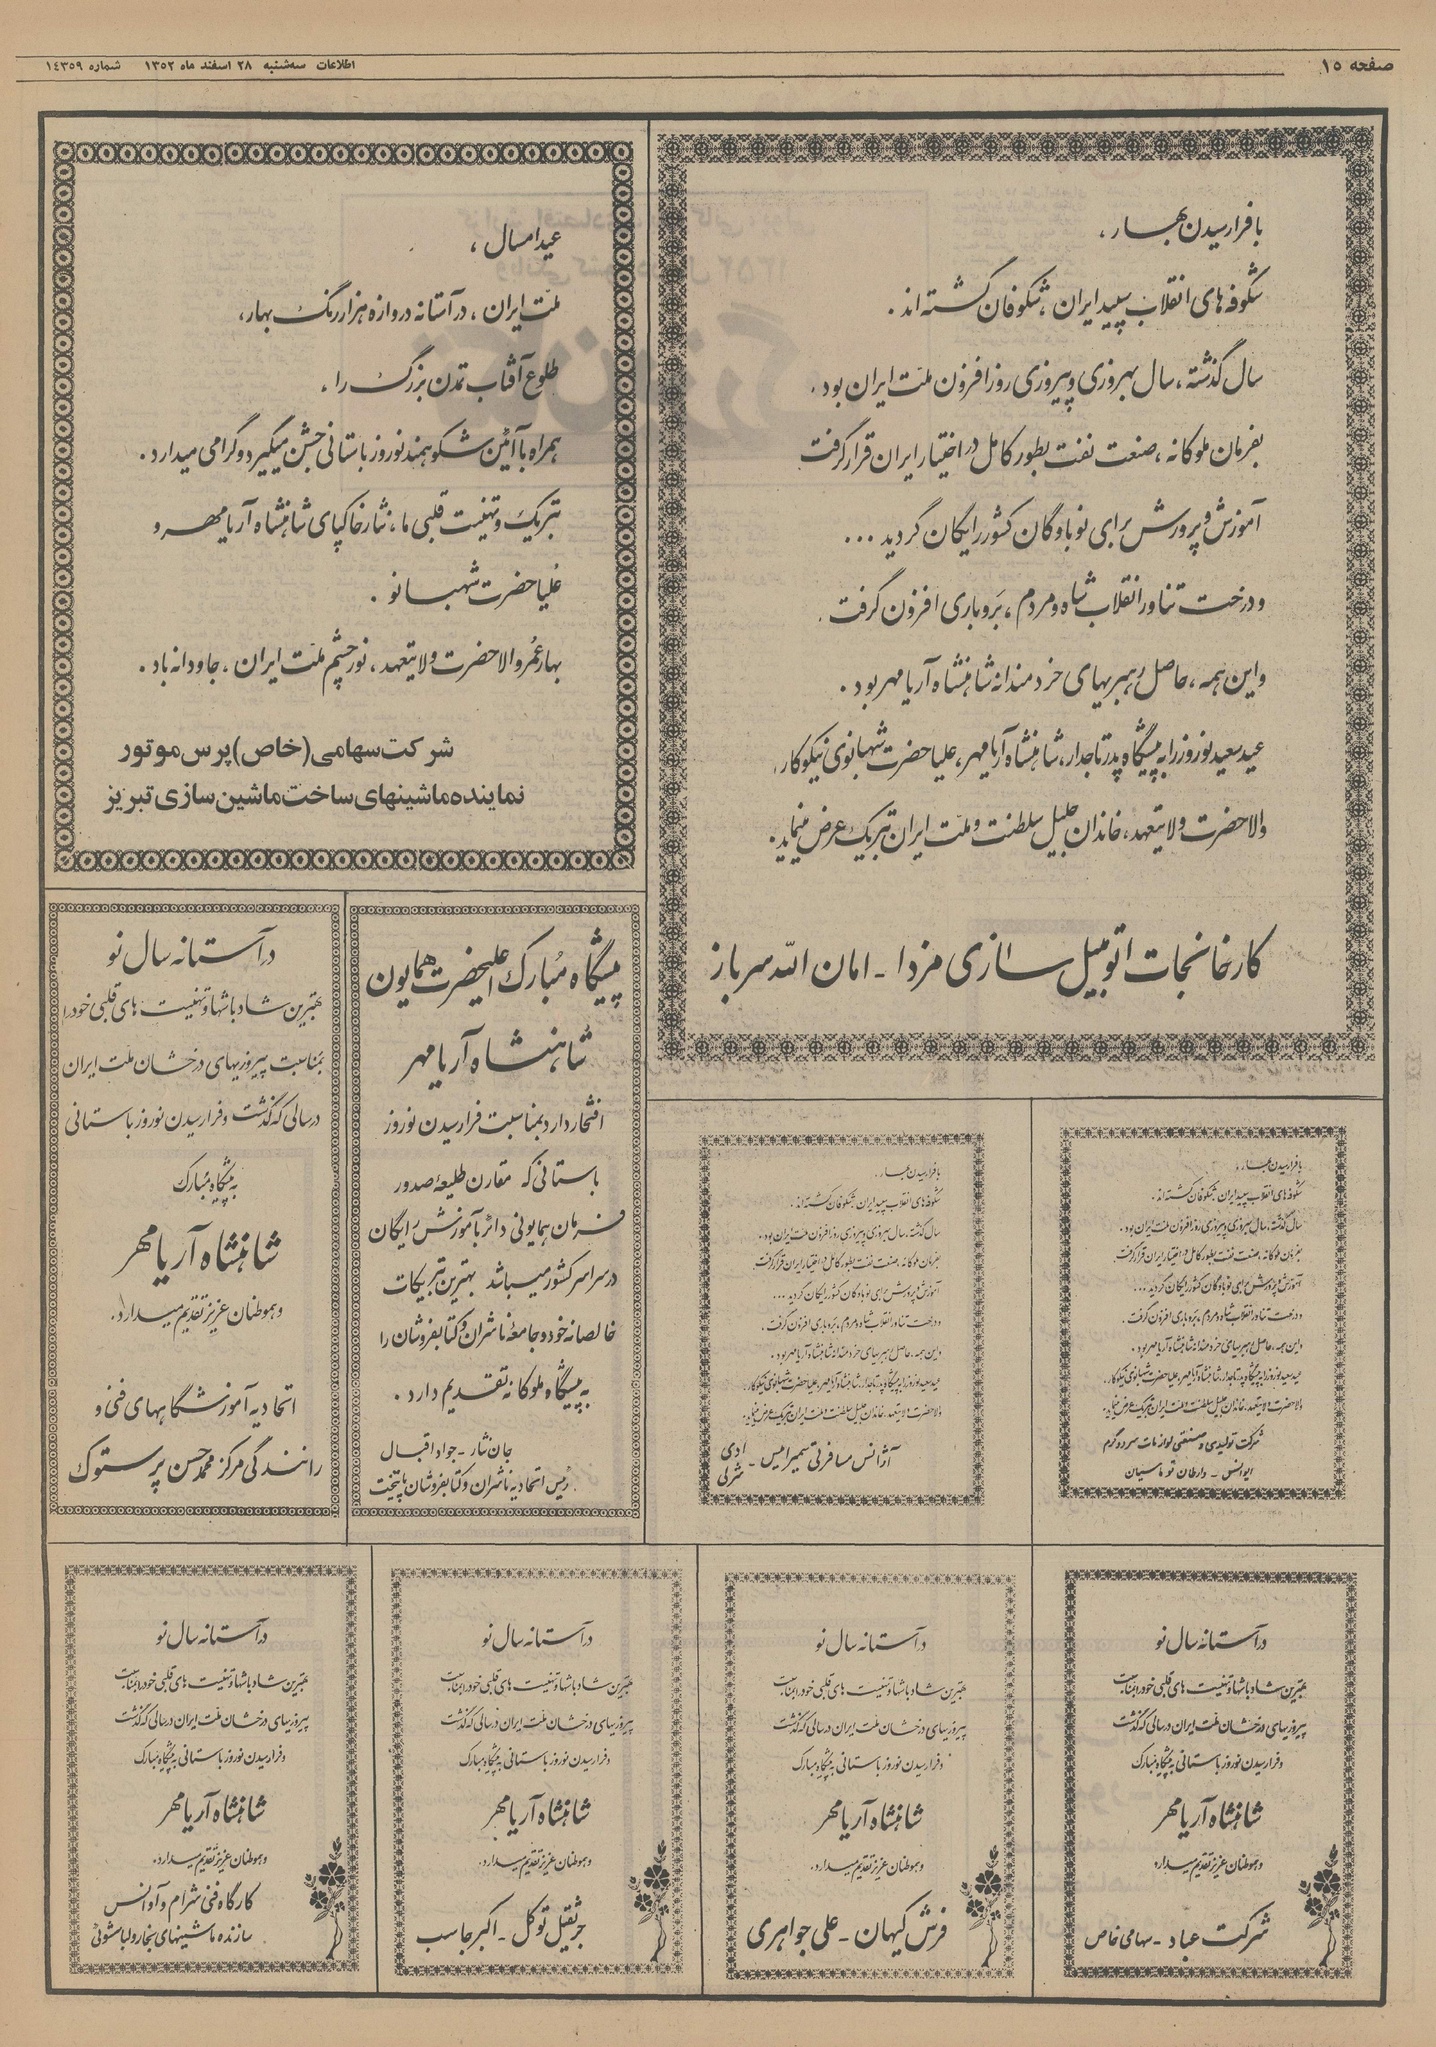 صفحه ۱۵
اطلاعات سه‌شنبه ۲۸ اسفند ماه ۱۳۵۲ شماره ۱٤۳۵۹
با فرارسیدن بهار ،
شکوفه های انقلاب سپید ایران ، شکوفان گشته اند .
سال گذشته ، سال بهروزی و پیروزی روزافزون ملت ایران بود .
بفرمان ملوکانه ، صنعت نفت بطور کامل در اختیار ایران قرار گرفت
آموزش و پرورش برای نوباوگان کشور رایگان گردید ...
و درخت تناور انقلاب شاه و مردم ، بَر و باری افزون گرفت .
و این همه ، حاصل رهبریهای خردمندانه شاهنشاه آریامهر بود .
عید سعید نوروز را به پیشگاه پدر تاجدار ، شاهنشاه آریامهر ، علیاحضرت شهبانوی نیکوکار ،
والاحضرت ولایتعهد ، خاندان جلیل سلطنت و ملت ایران تبریک عرض مینماید .
کارخانجات اتومبیل سازی مزدا - امان الله سرباز
عید امسال ،
ملت ایران ، در آستانه دروازه هزار رنگ بهار ،
طلوع آفتاب تمدن بزرگ را ،
همراه با آئین شکوهمند نوروز باستانی جشن میگیرد و گرامی میدارد .
تبریک و تهنیت قلبی ما ، نثار خاکپای شاهنشاه آریامهر و
عُلیاحضرت شهبانو .
بهار عُمر والاحضرت ولایتعهد ، نور چشم ملت ایران ، جاودانه باد .
شرکت سهامی (خاص) پرس موتور
نماینده ماشینهای ساخت ماشین سازی تبریز
پیشگاه مُبارک اعلیحضرت همایون
شاهنشاه آریامهر
افتخار دارد بمناسبت فرارسیدن نوروز
باستانی که مقارن طلیعهٔ صدور
فرمان همایونی دائر بآموزش رایگان
در سراسر کشور میباشد بهترین تبریکات
خالصانه خود و جامعهٔ ناشران و کتابفروشان را
به پیشگاه ملوکانه تقدیم دارد .
جان نثار - جواد اقبال
رئیس اتحادیه ناشران و کتابفروشان پایتخت
در آستانه سال نو
بهترین شادباشها و تهنیت های قلبی خود را
بمناسبت پیروزیهای درخشان ملت ایران
در سالی که گذشت و فرارسیدن نوروز باستانی
به پیشگاه مُبارک
شاهنشاه آریامهر
و هموطنان عزیز تقدیم میدارد .
اتحادیه آموزشگاههای فنی و
رانندگی مرکز محمدحسن پرستوک
با فرارسیدن بهار ،
شکوفه های انقلاب سپید ایران ، شکوفان گشته اند .
سال گذشته ، سال بهروزی و پیروزی روزافزون ملت ایران بود .
بفرمان ملوکانه ، صنعت نفت بطور کامل در اختیار ایران قرار گرفت .
آموزش و پرورش برای نوباوگان کشور رایگان گردید ...
و درخت تناور انقلاب شاه و مردم ، بَر و باری افزون گرفت .
و این همه ، حاصل رهبریهای خردمندانه شاهنشاه آریامهر بود .
عید سعید نوروز را به پیشگاه پدر تاجدار ، شاهنشاه آریامهر ، علیاحضرت شهبانوی نیکوکار ،
والاحضرت ولایتعهد ، خاندان جلیل سلطنت و ملت ایران تبریک عرض مینماید .
شرکت تولیدی و صنعتی لوازمات سرد و گرم
ایوانس - وارطان توماسیان
با فرارسیدن بهار ،
شکوفه های انقلاب سپید ایران ، شکوفان گشته اند .
سال گذشته ، سال بهروزی و پیروزی روزافزون ملت ایران بود .
بفرمان ملوکانه ، صنعت نفت بطور کامل در اختیار ایران قرار گرفت .
آموزش و پرورش برای نوباوگان کشور رایگان گردید ...
و درخت تناور انقلاب شاه و مردم ، بَر و باری افزون گرفت .
و این همه ، حاصل رهبریهای خردمندانه شاهنشاه آریامهر بود .
عید سعید نوروز را به پیشگاه پدر تاجدار ، شاهنشاه آریامهر ، علیاحضرت شهبانوی نیکوکار ،
والاحضرت ولایتعهد ، خاندان جلیل سلطنت و ملت ایران تبریک عرض مینماید .
آژانس مسافرتی سمیرامیس -
در آستانه سال نو
بهترین شادباشها و تهنیت های قلبی خود را بمناسبت
پیروزیهای درخشان ملت ایران در سالی که گذشت
و فرارسیدن نوروز باستانی به پیشگاه مبارک
شاهنشاه آریامهر
و هموطنان عزیز تقدیم میدارد
شرکت عباد - سهامی خاص
در آستانه سال نو
بهترین شادباشها و تهنیت های قلبی خود را بمناسبت
پیروزیهای درخشان ملت ایران در سالی که گذشت
و فرارسیدن نوروز باستانی به پیشگاه مبارک
شاهنشاه آریامهر
و هموطنان عزیز تقدیم میدارد .
فرش کیهان - علی جواهری
در آستانه سال نو
بهترین شادباشها و تهنیت های قلبی خود را بمناسبت
پیروزیهای درخشان ملت ایران در سالی که گذشت
و فرارسیدن نوروز باستانی به پیشگاه مبارک
شاهنشاه آریامهر
و هموطنان عزیز تقدیم میدارد .
جرثقیل توکل - اکبر جاسب
در آستانه سال نو
بهترین شادباشها و تهنیت های قلبی خود را بمناسبت
پیروزیهای درخشان ملت ایران در سالی که گذشت
و فرارسیدن نوروز باستانی به پیشگاه مبارک
شاهنشاه آریامهر
و هموطنان عزیز تقدیم میدارد .
کارگاه فنی شرام و آوانس
سازنده ماشینهای بخار و لباسشوئی